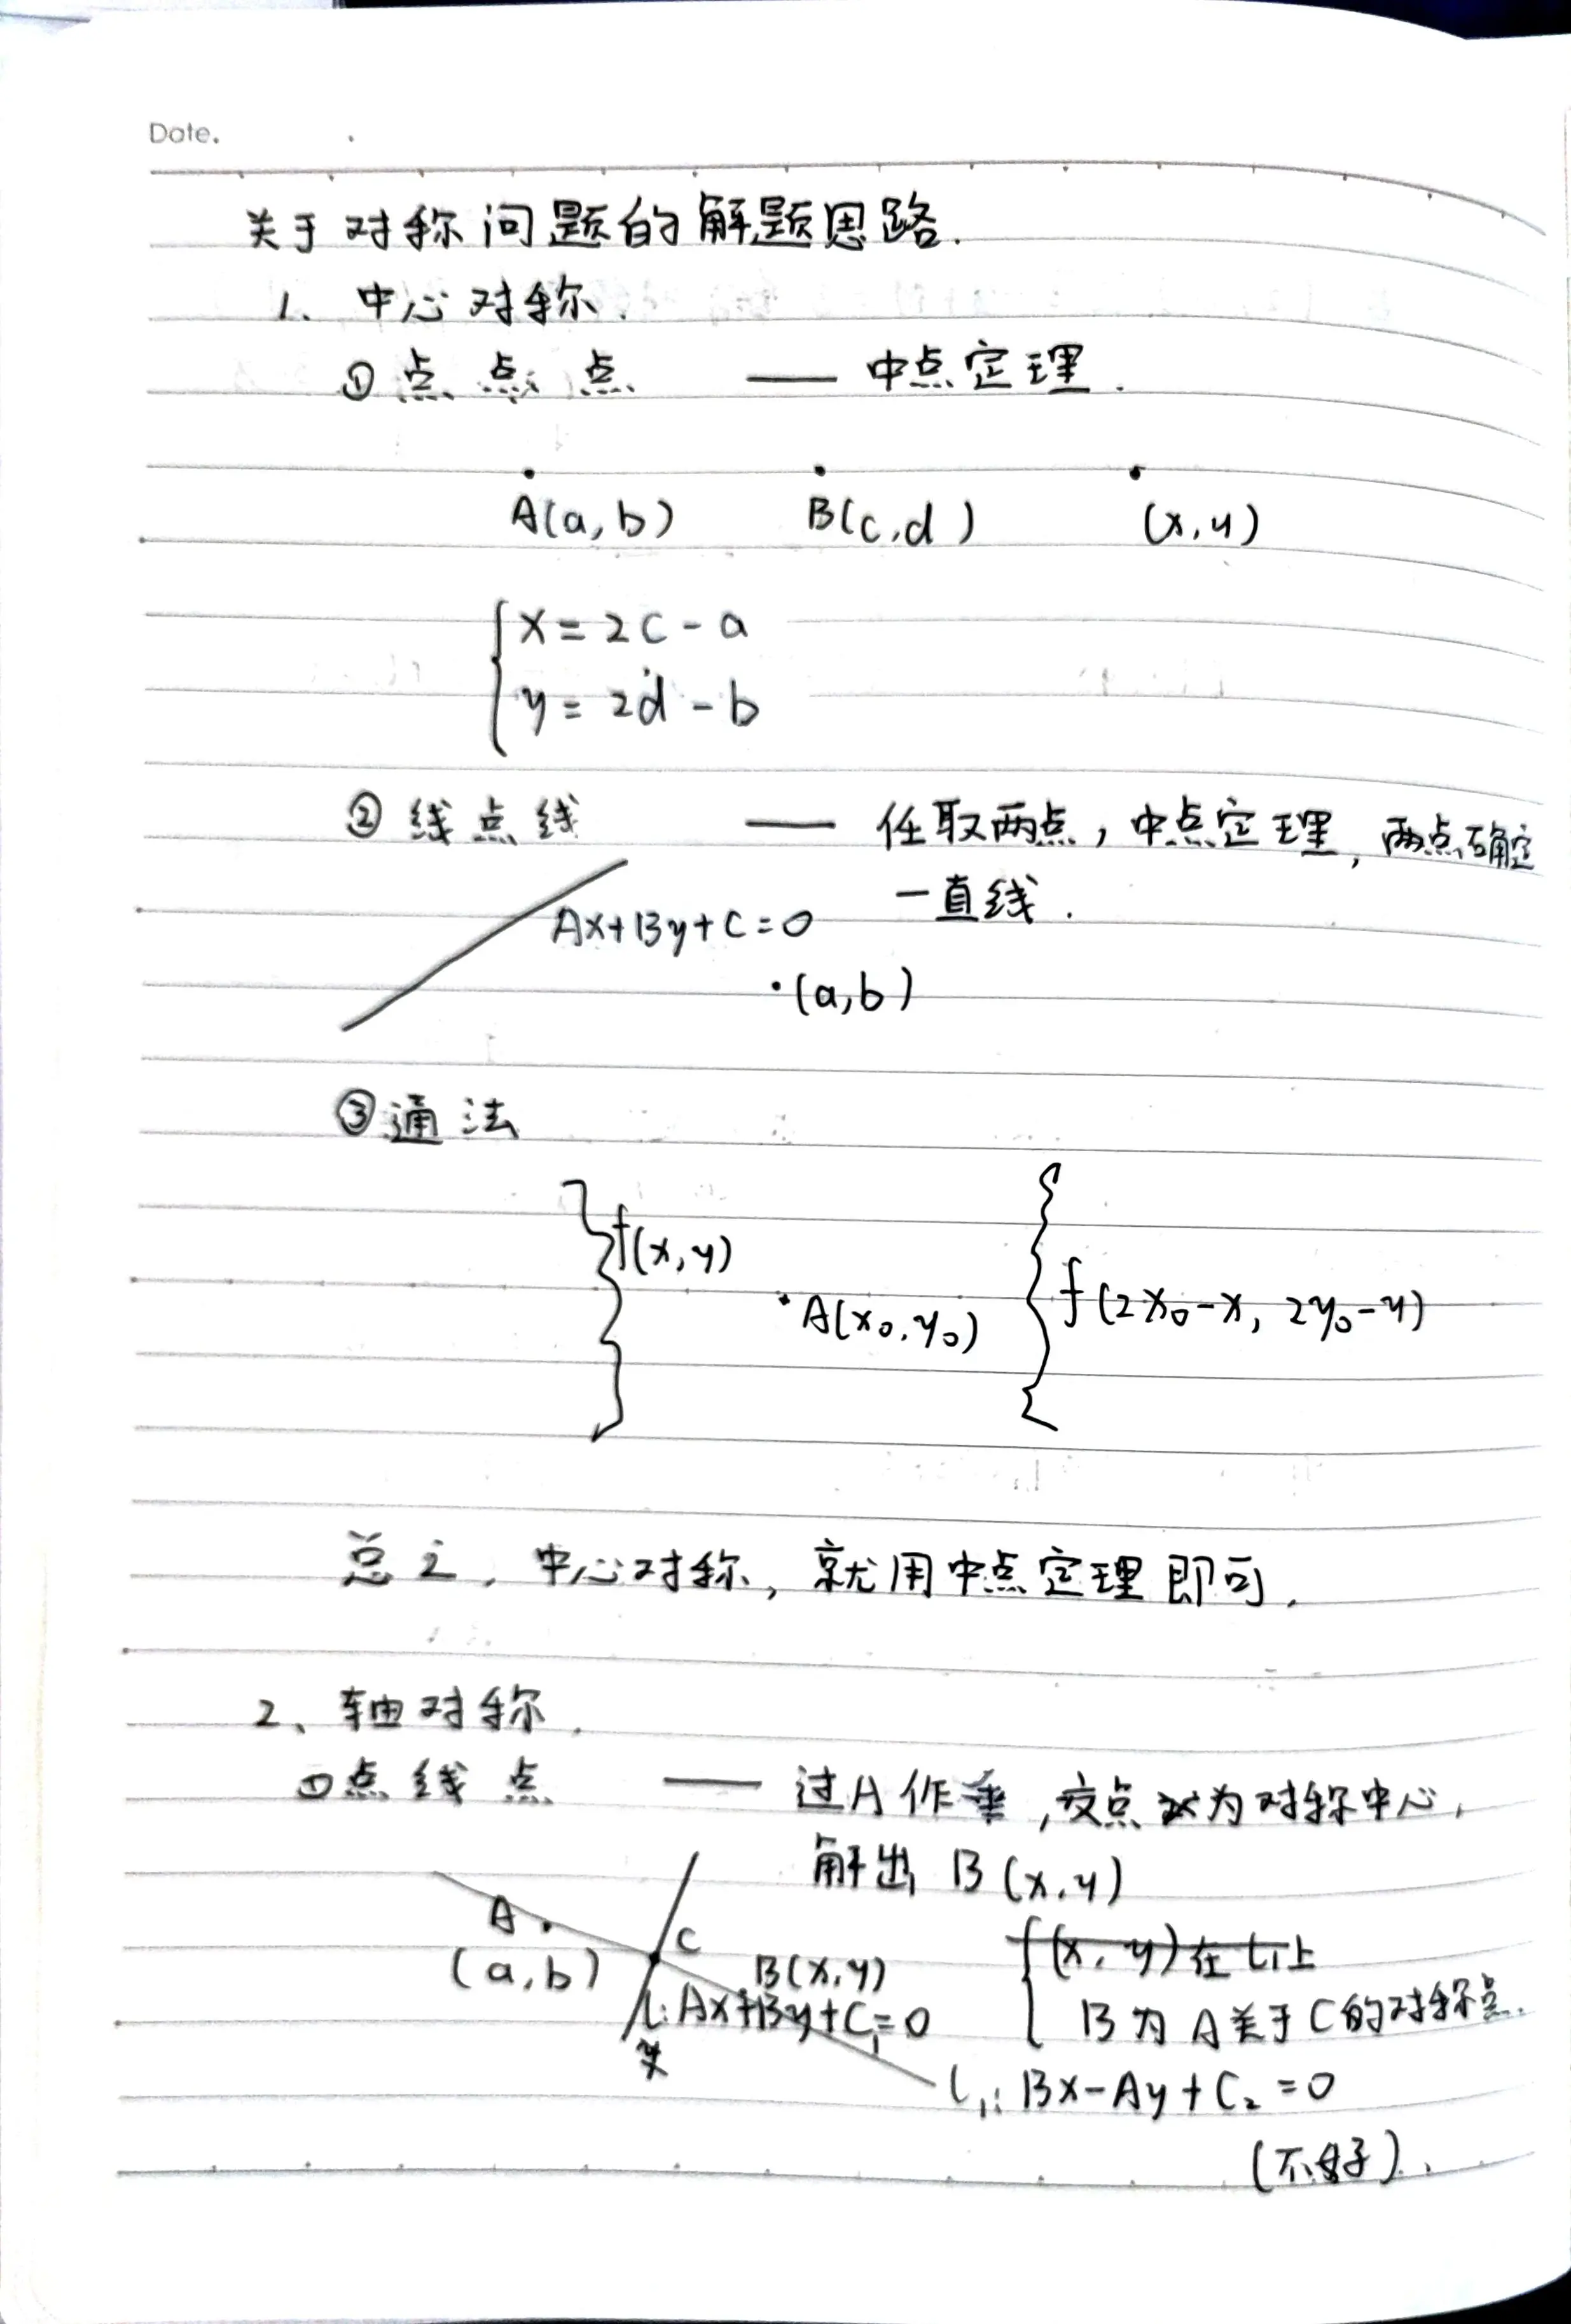 Date.
关于对称问题的解题思路.
1. 中心对称.
① 点 点 点 —— 中点定理.
A(a,b) B(c,d) (x,y)
{x=2c-a
y=2d-b
② 线点线 —— 任取两点,中点定理,两点确定
一直线.
Ax+By+C=0
(a,b)
③ 通法
f(x,y)
A(x₀,y₀) f(2x₀-x, 2y₀-y)
总之,中心对称,就用中点定理即可.
2、轴对称.
① 点线点 —— 过A作垂,交点为对称中心,
解出 B(x,y)
A C
(a,b) B(x,y) {(x,y)在l₁上
l:Ax+By+C₁=0 B为A关于C的对称点.
l₁:Bx-Ay+C₂=0
(不好).